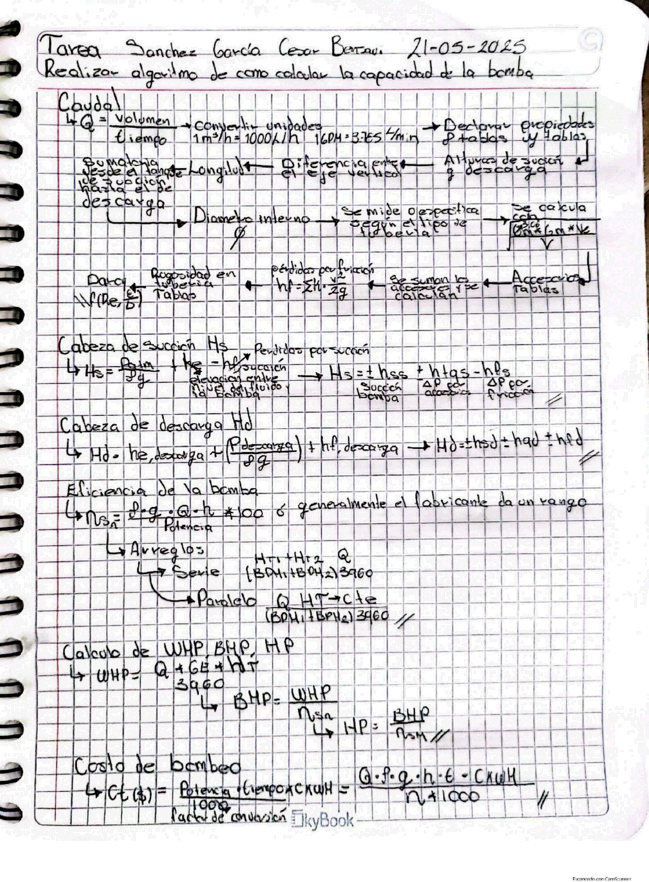 Tarea Sanchez García Cesar 21-05-2025
Realizar algoritmo de como calcular la capacidad de la bomba
Caudal
↳ Q = Volumen / tiempo → convertir unidades 1m³/h = 1000L/h 1GPM = 3.785 L/min → Declarar propiedades ρ tablas y tablas
Sumatoria desde el tanque de succion hasta el de descarga ← Longitud ← Diferencia entre el eje vertical ← Alturas de succión y descarga
→ Diametro interno ϕ → Se mide o especifica según el tipo de tubería → Se calcula con
Darcy W(Re, ε/D) ← Rugosidad en tubería Tablas ← pérdidas por fricción hf = ΣK · v²/2g ← Se suman los accesorios y se calculan ← Accesorios Tablas
Cabeza de succión Hs
↳ Hs = Patm / ρg + he - hf succión Perdidas por succión → Hs = ± hss ± htqs - hfs
elevación entre nivel del fluido y la bomba Succión bomba ΔP por accesorios ΔP por fricción
Cabeza de descarga Hd
↳ Hd = he, descarga + (P descarga / ρg) + hf, descarga → Hd = ± hsd ± hqd ± hfd
Eficiencia de la bomba
↳ ηSn = ρ · g · Q · h / Potencia * 100 ó generalmente el fabricante da un rango
↳ Arreglos
↳ Serie HT1 + HT2 Q / (BPH1 + BPH2) 3960
→ Paralelo Q HT → cte / (BPH1 + BPH2) 3960
Calculo de WHP, BHP, HP
↳ WHP = Q * GE * HT / 3960
↳ BHP = WHP / ηSn
↳ HP = BHP / ηSM
Costo de bombeo
↳ Ct($) = Potencia · tiempo * CKWH / 1000 = Q · ρ · g · h · t · CKWH / η * 1000
factor de conversión SkyBook
Escaneado con CamScanner